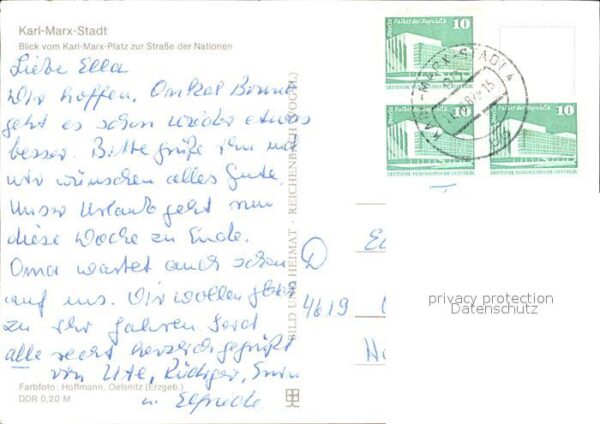 Karl-Marx-Stadt
Blick vom Karl-Marx-Platz zur Straße der Nationen
Liebe Ella
Wir hoffen, Onkel
geht es schon wieder etwas
besser. Bitte grüße ihn mal
wir wünschen alles Gute.
Unser Urlaub geht nun
diese Woche zu Ende.
Oma wartet auch schon
auf uns. Wir wollen
zu ihr fahren. Seid
alle recht herzlich gegrüßt
von Ute, Rüdiger,
u. Elfriede
Farbfoto: Hoffmann, Oelsnitz (Erzgeb.)
DDR 0,20 M
BILD UND HEIMAT · REICHENBACH (VOGTL)
Berlin Palast der Republik 10
DEUTSCHE DEMOKRATISCHE REPUBLIK
Berlin Palast der Republik 10
DEUTSCHE DEMOKRATISCHE REPUBLIK
Berlin Palast der Republik 10
DEUTSCHE DEMOKRATISCHE REPUBLIK
KARL-MARX-STADT 4
D
4619
privacy protection
Datenschutz